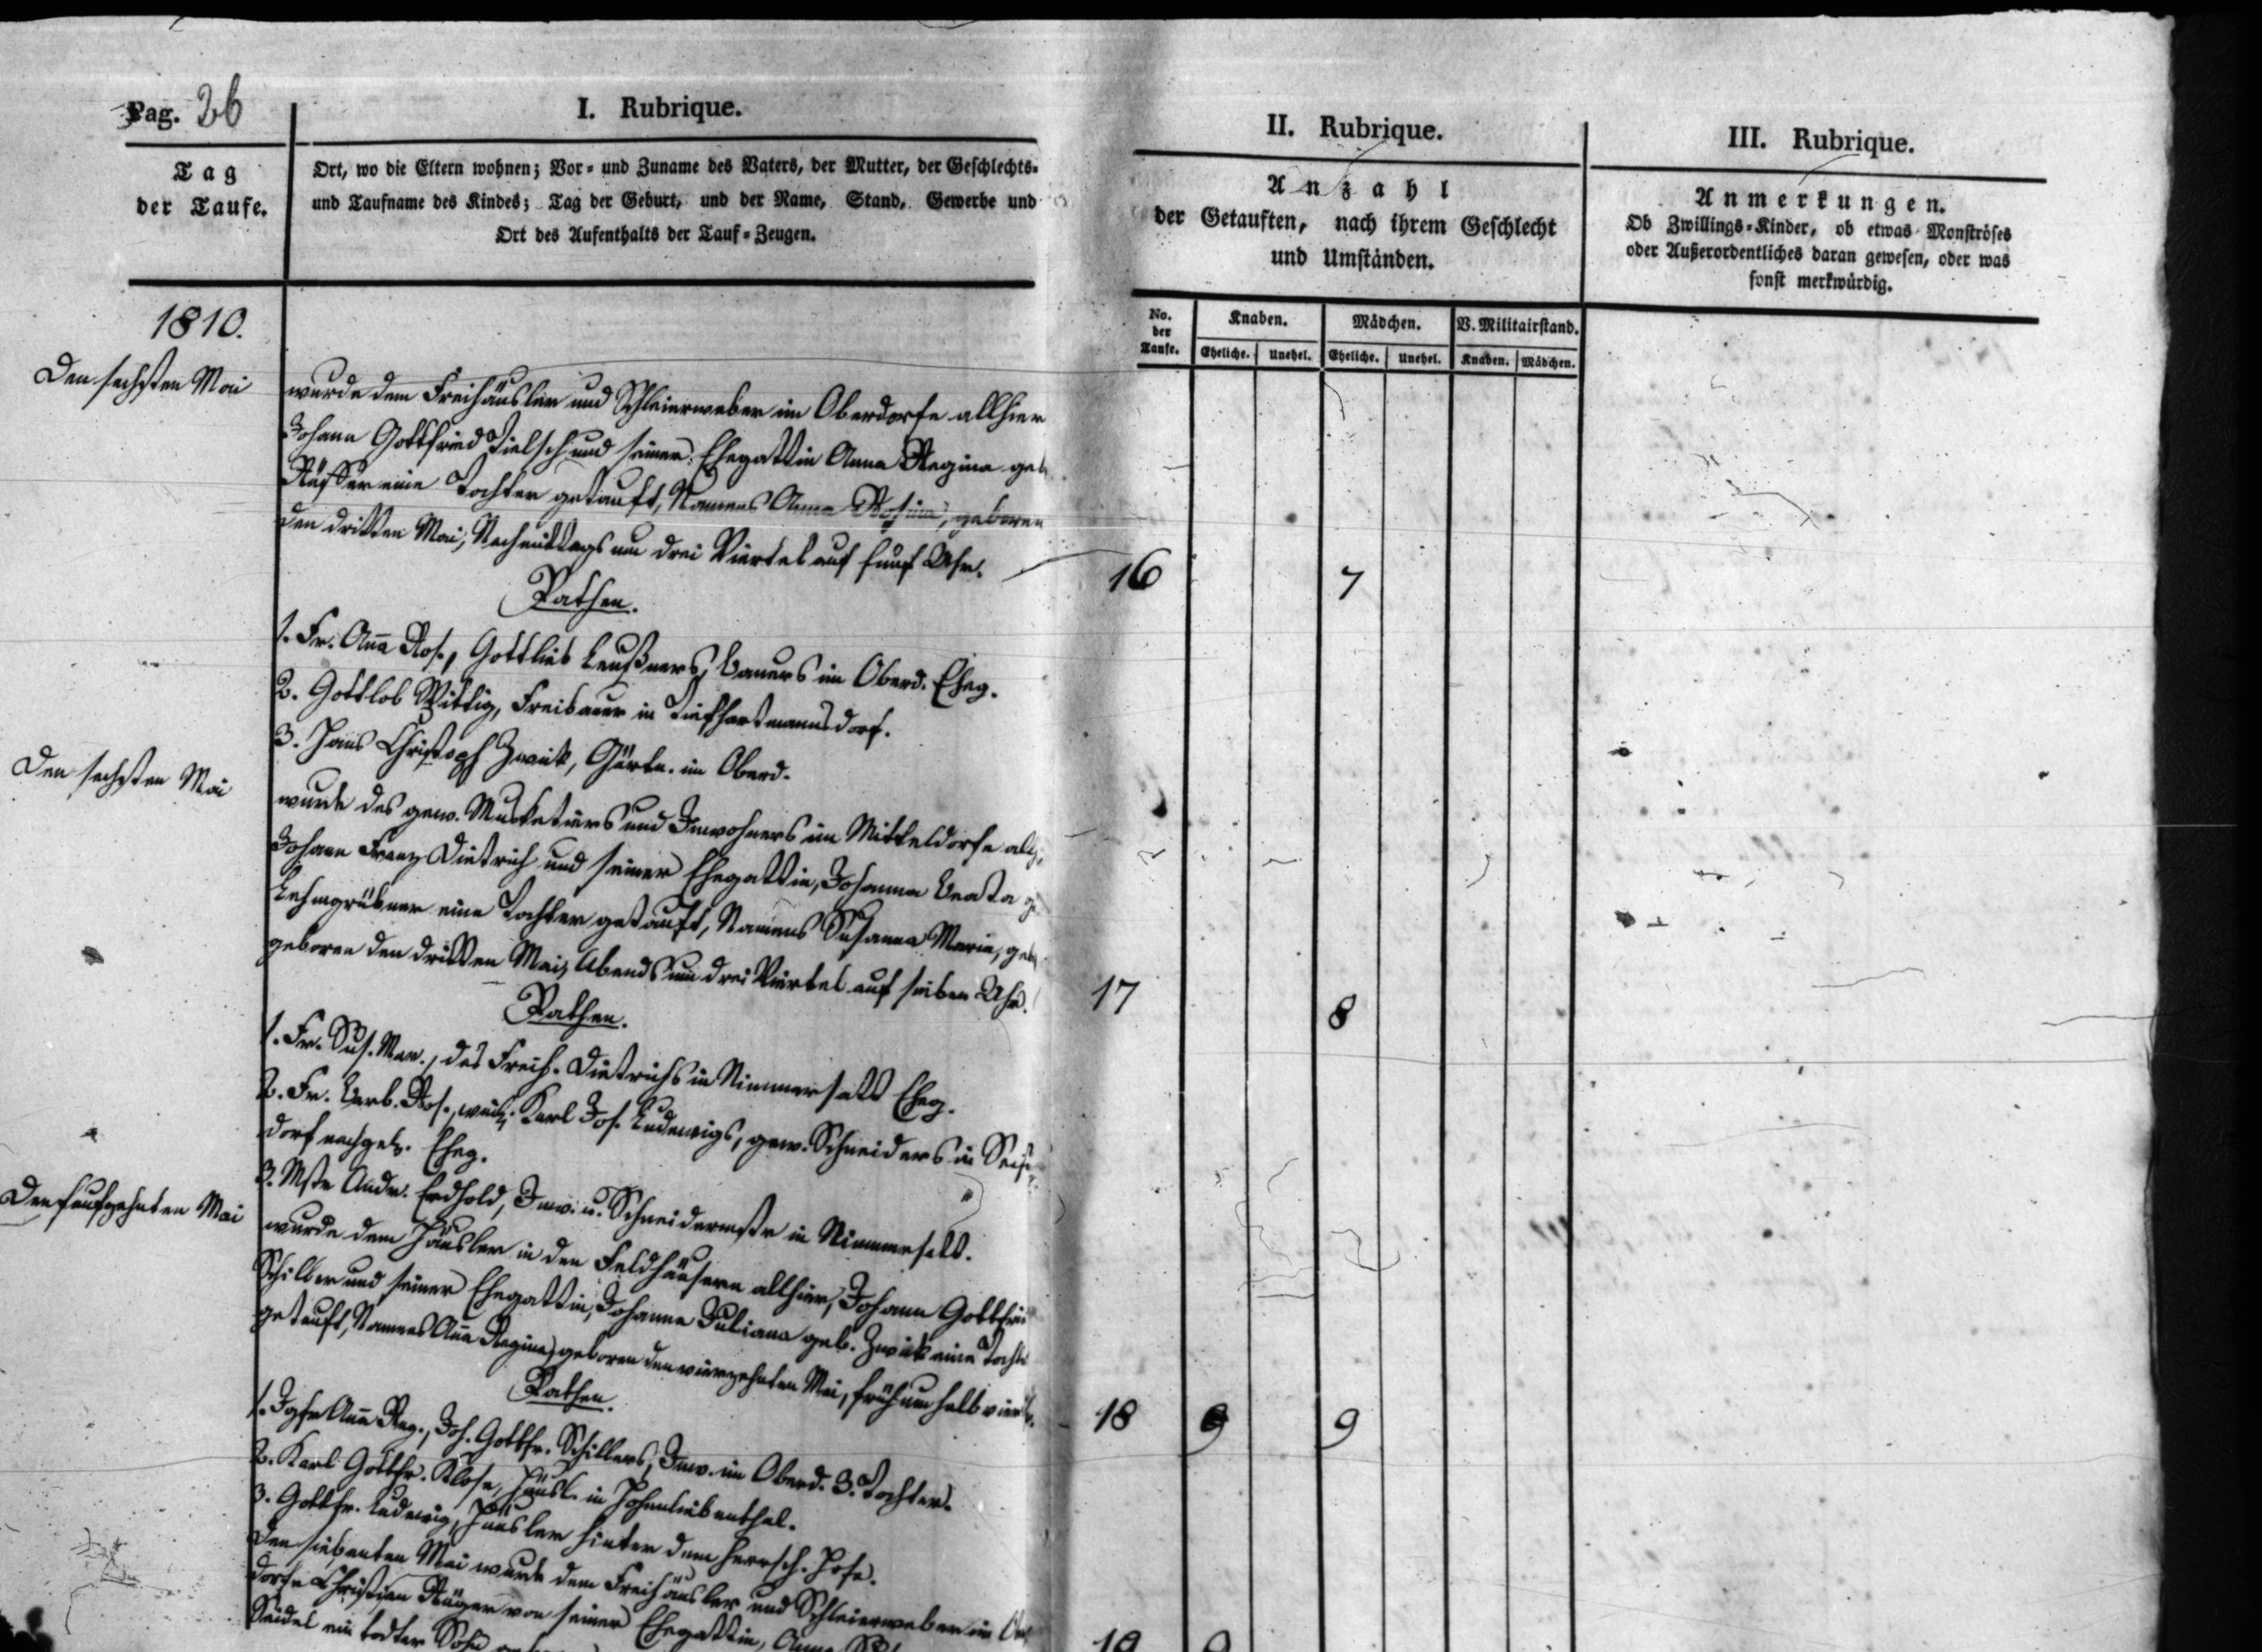 Pag. 26
I. Rubrique.
Tag
der Taufe.
Ort, wo die Eltern wohnen; Vor- und Zuname des Vaters, der Mutter, der Geschlechts-
und Taufname des Kindes; Tag der Geburt, und der Name, Stand, Gewerbe und
Ort des Aufenthalts der Tauf-Zeugen.
1810.
Den sechsten Mai
wurde dem Freihäusler und Schleierweber im Oberdorfe allhier
Johann Gottfried Tielsch und seiner Ehegattin Anna Regina geb.
eine Tochter getauft, Namens Anna Rosina, geboren
den dritten Mai, Nachmittags um drei Viertel auf fünf Uhr.
Pathen.
1. Fr. Aña Ros., Gottlieb Leußners, Bauers im Oberd. Eheg.
2. Gottlob Wittig, Freibauer in Tiefhartmannsdorf.
3. Hans Christoph Zwick, Gärtn. im Oberd.
Den sechsten Mai
wurde des gew. Musketiers und Inwohners im Mitteldorfe allh.
Johann Franz Dietrich und seiner Ehegattin, Johanna Beata g
Lehmgrübner eine Tochter getauft, Namens Susanna Maria, geb
geboren den dritten Mai, Abends um drei Viertel auf sieben Uhr.
Pathen.
1. Fr. Sus. Mar., des Freih. Dietrichs in Nimmersatt Eheg.
2. Fr. Barb. Ros., weil. Karl Jos. Ludewigs, gew. Schneiders in
dorf nachgel. Eheg.
3. Mstr Andr. Erdhold, Inw. u. Schneidermstr in Nimmersatt.
Den funfzehnten Mai
wurde dem Häusler in den Feldhäusern allhier, Johann Gottfrie
Schiller und seiner Ehegattin, Johanne Juliana geb. Zwick eine Tocht
getauft, Namens Aña Regina, geboren den vierzehnten Mai, früh um halb vier
Pathen.
1. Jgfr Aña Reg., Joh. Gottfr. Schillers, Inw. im Oberd. 3. Tochter.
2. Karl Gottfr. Klose, Häusl. in Hohenliebenthal.
3. Gottfr. Ludewig, Häusler hinter dem herrsch. Hofe.
Den siebenten Mai wurde dem Freihäusler und Schleierweber im
dorfe Christian von seiner Ehegattin, Anna
Seidel ein todter Sohn
II. Rubrique.
Anzahl
der Getauften, nach ihrem Geschlecht
und Umständen.
No.
der
Taufe.
Knaben.
Mädchen.
V. Militairstand.
Eheliche.
Unehel.
Eheliche.
Unehel.
Knaben.
Mädchen.
16
7
17
8
18
9
19
III. Rubrique.
Anmerkungen.
Ob Zwillings-Kinder, ob etwas Monströses
oder Außerordentliches daran gewesen, oder was
sonst merkwürdig.